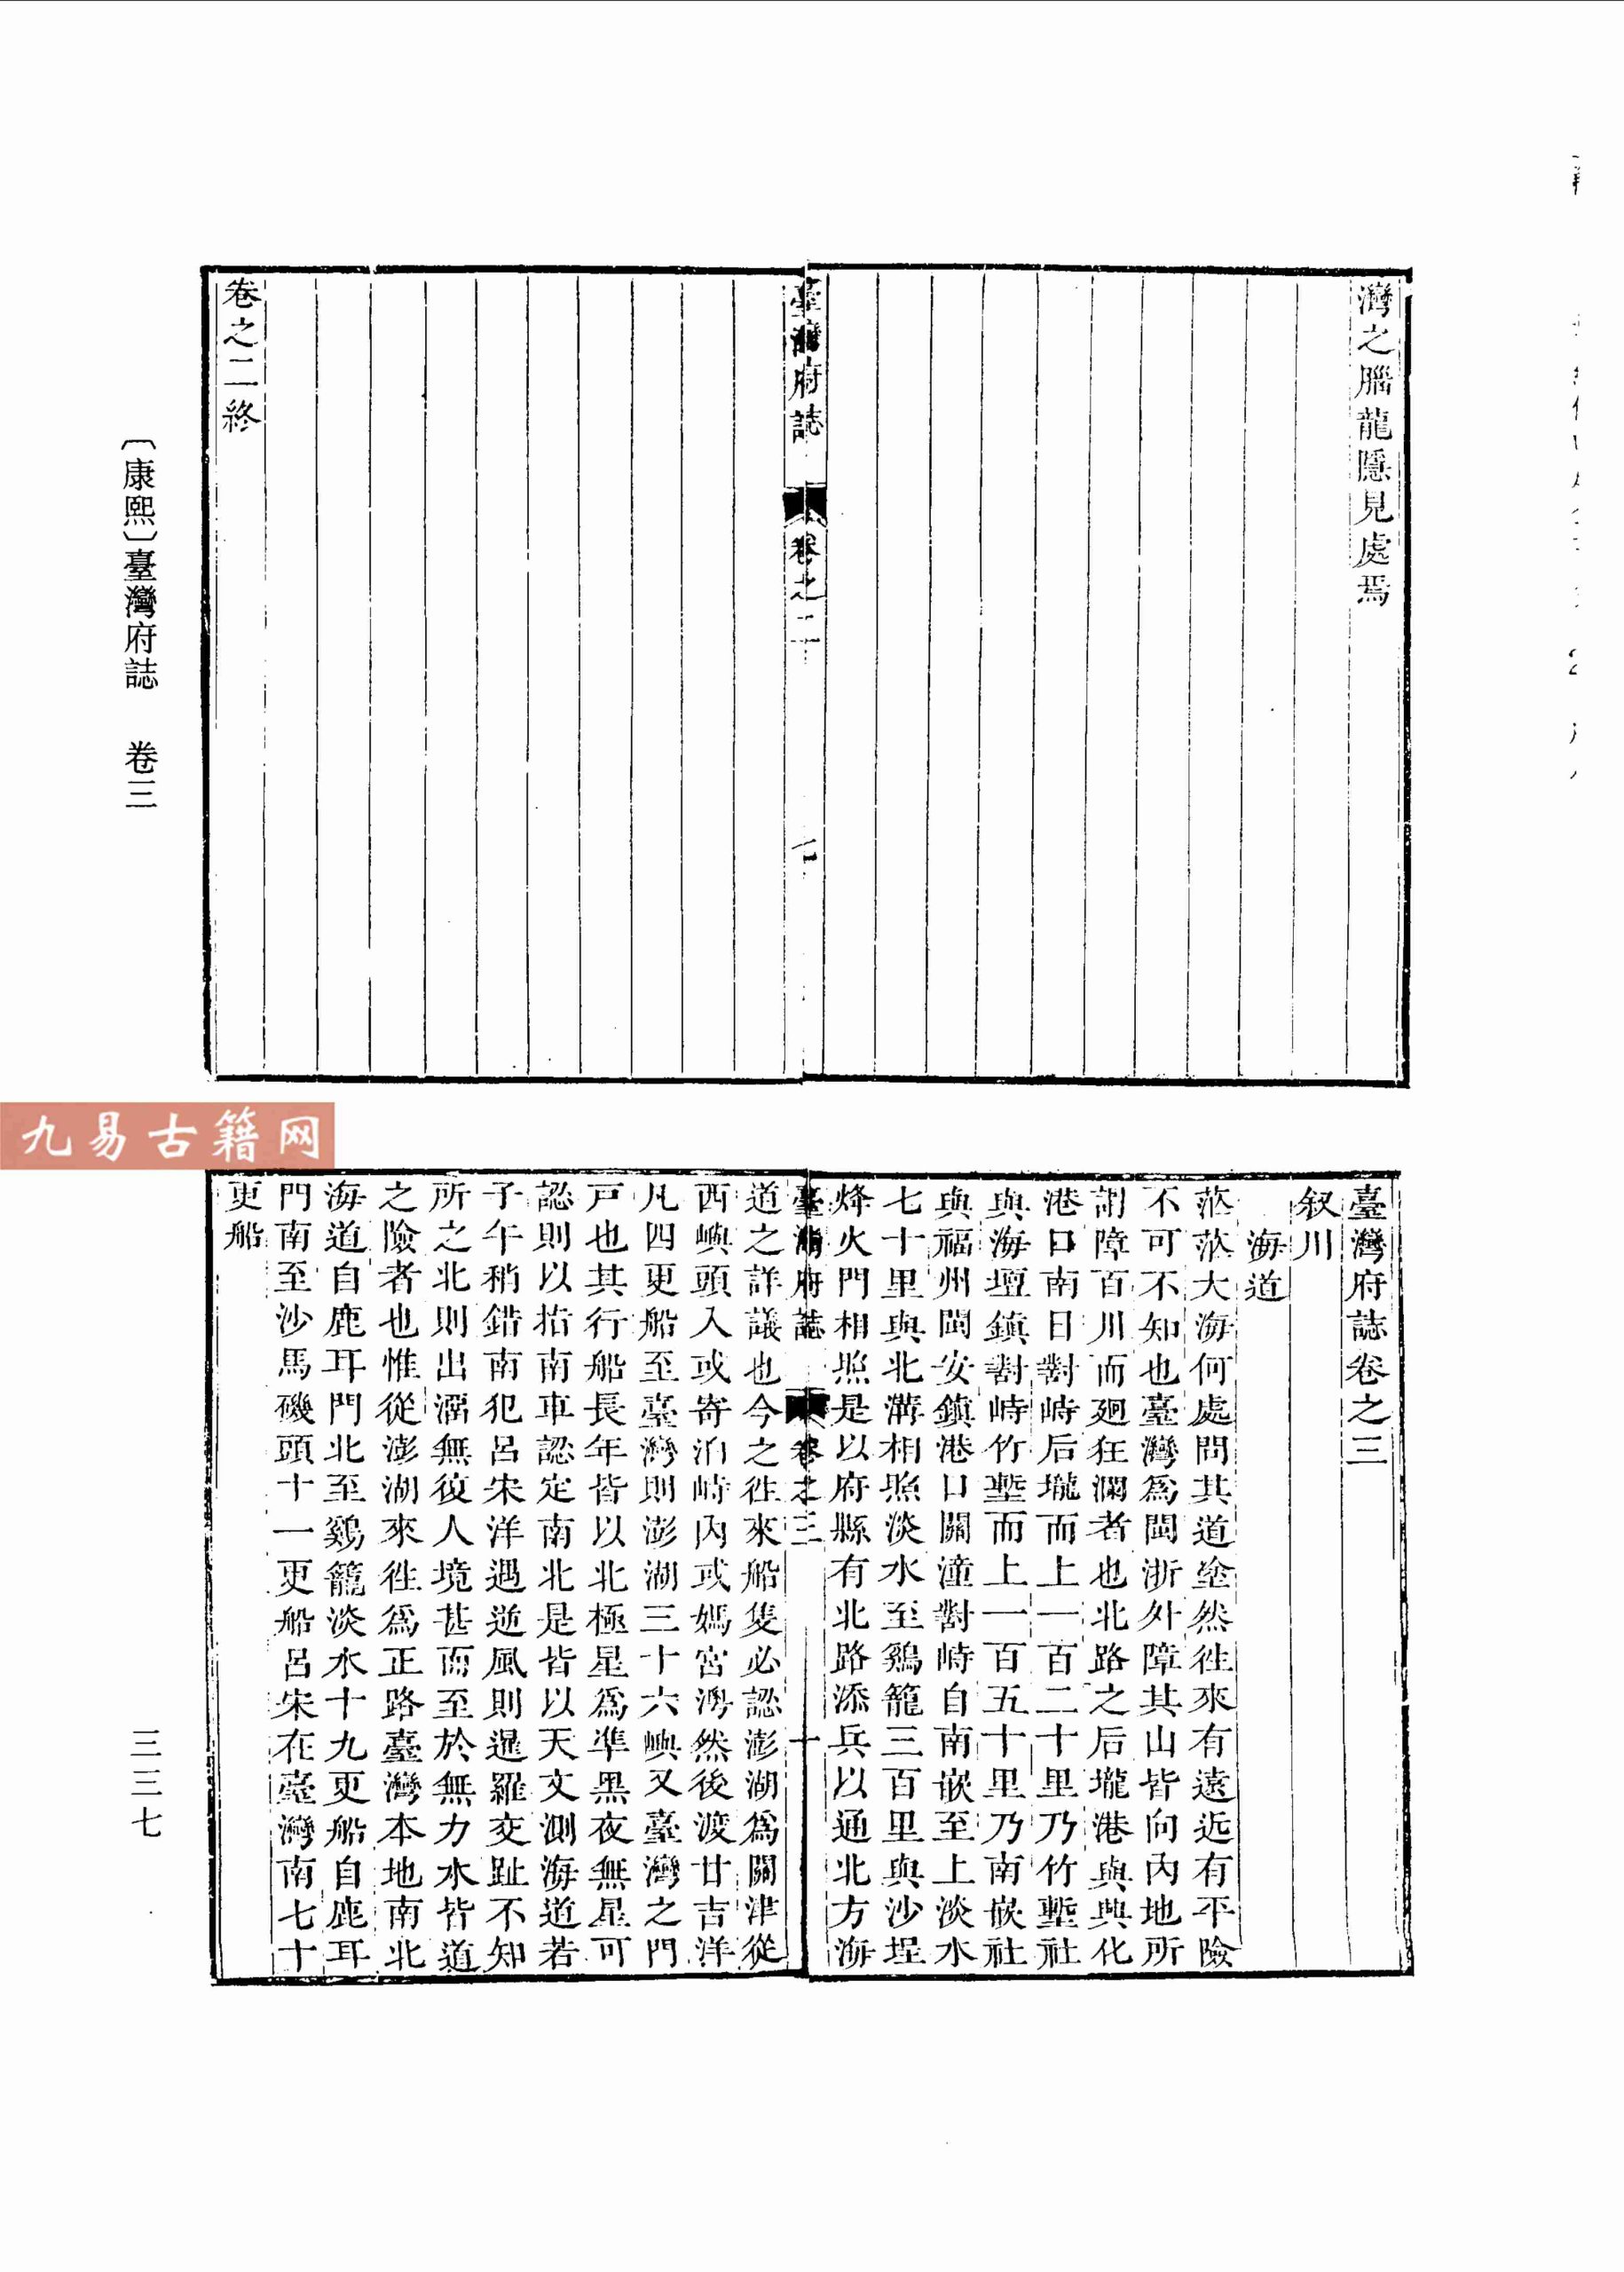 灣之腦龍隱見處焉
臺灣府誌
卷之二
卷之二終
〔康熙〕臺灣府誌　卷三
九易古籍网
臺灣府誌卷之三
叙川
海道
茫茫大海何處問其道塗然徃來有遠近有平險
不可不知也臺灣為閩浙外障其山皆向內地所
謂障百川而廻狂瀾者也北路之后壠港與興化
港口南日對峙后壠而上一百二十里乃竹塹社
與海壇鎮對峙竹塹而上一百五十里乃南嵌社
與福州閩安鎮港口關潼對峙自南嵌至上淡水
七十里與北溝相照淡水至鷄籠三百里與沙埕
烽火門相照是以府縣有北路添兵以通北方海
臺灣府誌
卷之三
十
道之詳議也今之徃來船隻必認澎湖為關津從
西嶼頭入或寄泊峙內或媽宮灣然後渡廿吉洋
凡四更船至臺灣則澎湖三十六嶼又臺灣之門
戸也其行船長年皆以北極星為準黑夜無星可
認則以指南車認定南北是皆以天文測海道若
子午稍錯南犯呂宋洋遇逆風則暹羅交趾不知
所之北則出溺無復人境甚而至於無力水皆道
之險者也惟從澎湖來徃為正路臺灣本地南北
海道自鹿耳門北至鷄籠淡水十九更船自鹿耳
門南至沙馬磯頭十一更船呂宋在臺灣南七十
更船
三三七